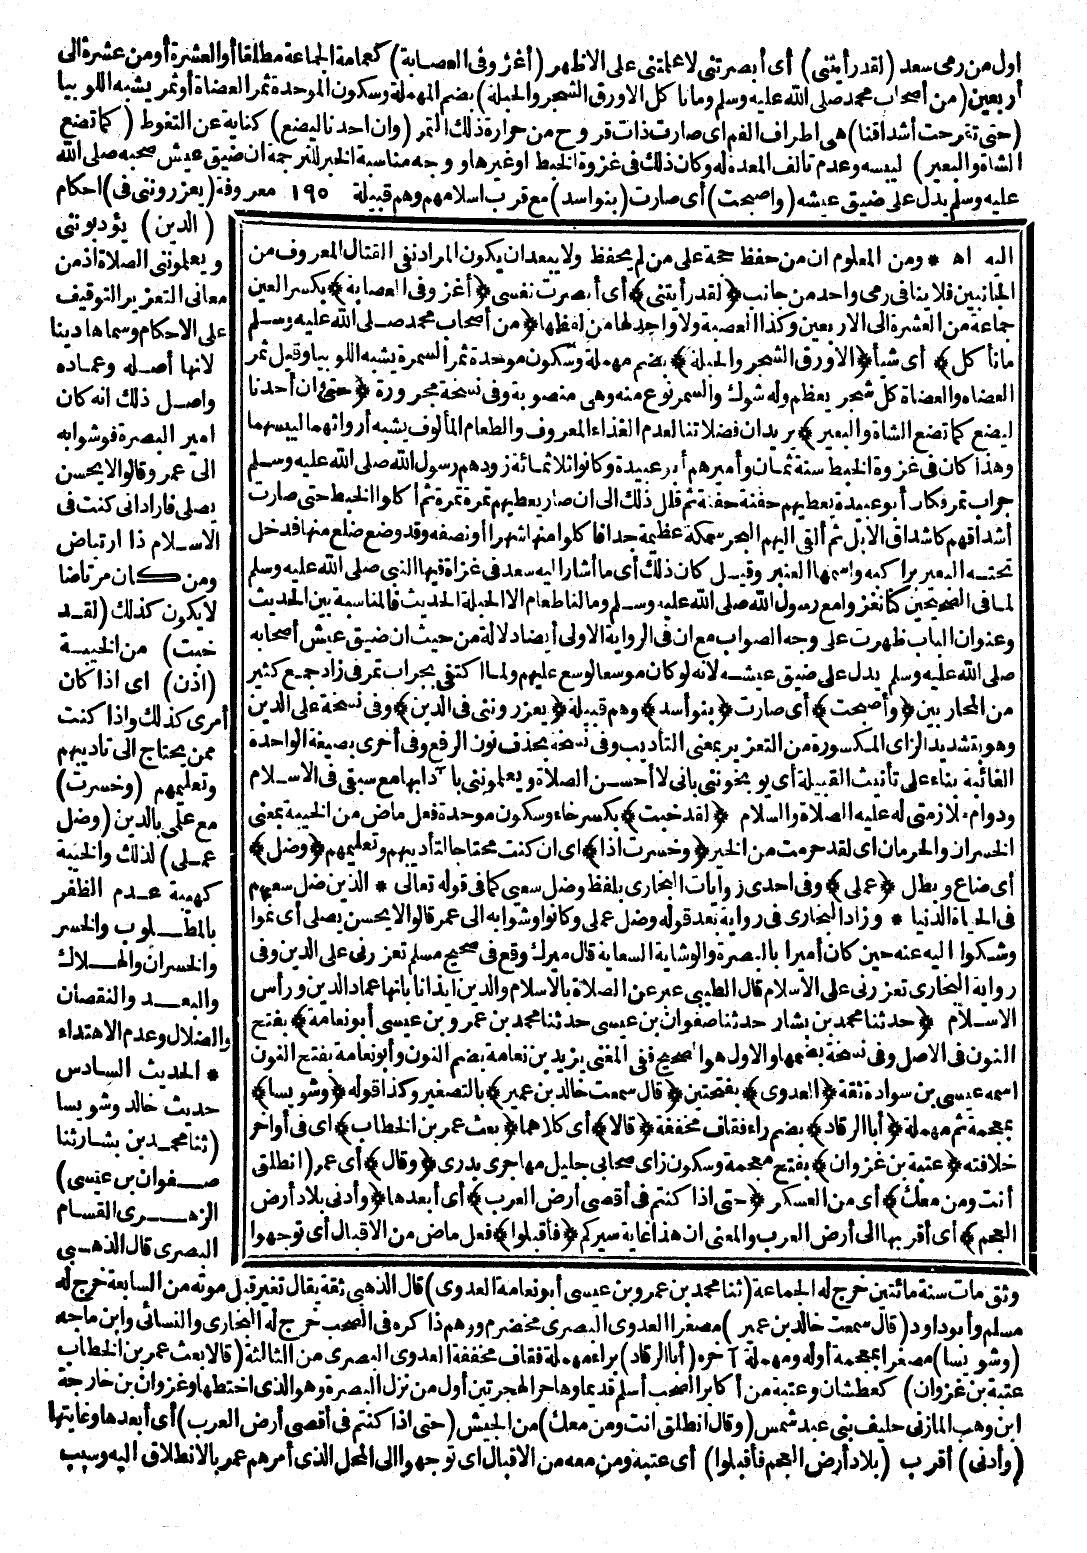 اول من رمى سعد (لقد رأيتنى) أى أبصرتنى لا علمتنى على الاظهر (أغزو فى العصابة) كعمامة الجماعة مطلقا أو العشرة أو من عشرة الى
أربعين (من أصحاب محمد صلى الله عليه وسلم وما نا كل الا ورق الشجر والحبلة) بضم المهملة وسكون الموحدة ثمر العضاة أو ثمر يشبه اللوبيا
(حتى تقرحت أشداقنا) هى اطراف الفم اى صارت ذات قروح من حرارة ذلك الثمر (وان احدنا ليضع) كناية عن التغوط (كما تضع
الشاة والبعير) ليبسه وعدم تألف المعدة له وكان ذلك فى غزوة الخبط او غيرها ووجه مناسبة الخبر للترجمة ان ضيق عيش صحبه صلى الله
عليه وسلم يدل على ضيق عيشه (واصبحت) أى صارت (بنو اسد) مع قرب اسلامهم وهم قبيلة ١٩٥ معروفة (يعزروننى فى) احكام
(الدين) يؤدبوننى
ويعلموننى الصلاة اذ من
معانى التعزير التوقيف
على الاحكام وسماها دينا
لانها أصله وعماده
واصل ذلك انه كان
امير البصرة فوشوا به
الى عمر وقالوا لا يحسن
يصلى فاراد انى كنت فى
الاسلام ذا ارتياض
ومن كان مرتاضا
لا يكون كذلك (لقد
خبت) من الخيبة
(اذن) اى اذا كان
أمرى كذلك واذا كنت
ممن يحتاج الى تاديبهم
وتعليمهم (وخسرت)
مع على بالدين (وضل
عملى) لذلك والخيبة
كهيبة عدم الظفر
بالمطلوب والخسر
والخسران والهلاك
والبعد والنقصان
والضلال وعدم الاهتداء
* الحديث السادس
حديث خالد وشويسا
(ثنا محمد بن بشار ثنا
صفوان بن عيسى)
الزهرى القسام
البصرى قال الذهبى
اليه اه * ومن المعلوم ان من حفظ حجة على من لم يحفظ ولا يبعد ان يكون المراد نفى القتال المعروف من
الجانبين فلا ينافى رمى واحد من جانب ﴿لقد رأيتنى﴾ أى أبصرت نفسى ﴿أغزو فى العصابة﴾ بكسر العين
جماعة من العشرة الى الاربعين وكذا العصبة ولا واحد لها من لفظها ﴿من أصحاب محمد صلى الله عليه وسلم
مانأ كل﴾ أى شيأ ﴿الا ورق الشجر والحبلة﴾ بضم مهملة وسكون موحدة ثمر السمرة يشبه اللوبيا وقيل ثمر
العضاه والعضاة كل شجر يعظم وله شوك والسمر نوع منه وهى منصوبة وفى نسخة مجرورة ﴿حتى ان أحدنا
ليضع كما تضع الشاة والبعير﴾ يريد ان فضلاتنا لعدم الغذاء المعروف والطعام المألوف يشبه أرواثهما ليبسهما
وهذا كان فى غزوة الخبط سنة ثمان وأميرهم أبو عبيدة وكانوا ثلاثمائة زودهم رسول الله صلى الله عليه وسلم
جراب تمر فكان أبو عبيدة يعطيهم حفنة حفنة ثم قلل ذلك الى ان صار يعطيهم تمرة تمرة ثم أكلوا الخبط حتى صارت
أشداقهم كاشداق الابل ثم ألقى اليهم البحر سمكة عظيمة جدا فاكلوا منها شهرا أو نصفه وقد وضع ضلع منها فدخل
تحته البعير براكبه واسمها العنبر وقيل كان ذلك أى ما أشار اليه سعد فى غزاة فيها النبى صلى الله عليه وسلم
لما فى الصحيحين كنا نغزو مع رسول الله صلى الله عليه وسلم ومالنا طعام الا الحبلة الحديث فالمناسبة بين الحديث
وعنوان الباب ظهرت على وجه الصواب مع ان فى الرواية الاولى أيضا دلالة من حيث ان ضيق عيش أصحابه
صلى الله عليه وسلم يدل على ضيق عيشه لانه لو كان موسعا لوسع عليهم ولما اكتفى بجراب تمر فى زاد جمع كثير
من المحاربين ﴿وأصبحت﴾ أى صارت ﴿بنو أسد﴾ وهم قبيلة ﴿يعزروننى فى الدين﴾ وفى نسخة على الدين
وهو بتشديد الزاى المكسورة من التعزير بمعنى التأديب وفى نسخة بحذف نون الرفع وفى أخرى بصيغة الواحدة
الغائبة بناء على تأنيث القبيلة أى يوبخوننى بانى لا أحسن الصلاة ويعلموننى بآدابها مع سبقى فى الاسلام
ودوام ملازمتى له عليه الصلاة والسلام ﴿لقد خبت﴾ بكسر خاء وسكون موحدة فعل ماض من الخيبة بمعنى
الخسران والحرمان اى لقد حرمت من الخير ﴿وخسرت اذا﴾ اى ان كنت محتاجا لتأديبهم وتعليمهم ﴿وضل﴾
أى ضاع وبطل ﴿عملى﴾ وفى احدى زوايات البخارى بلفظ وضل سعيى كما فى قوله تعالى * الذين ضل سعيهم
فى الحياة الدنيا * وزاد البخارى فى رواية بعد قوله وضل عملى وكانوا وشوا به الى عمر قالوا لا يحسن يصلى أى نموا
وشكوا اليه عنه حين كان أميرا بالبصرة والوشاية السعاية قال ميرك وقع فى صحيح مسلم تعزرنى على الدين وفى
رواية البخارى تعزرنى على الاسلام قال الطيبى عبر عن الصلاة بالاسلام والدين ايذانا بانها عماد الدين ورأس
الاسلام ﴿حدثنا محمد بن بشار حدثنا صفوان بن عيسى حدثنا محمد بن عمرو بن عيسى أبو نعامة﴾ بفتح
النون فى الاصل وفى نسخة بضمها والاول هو الصحيح ففى المغنى يزيد بن نعامة بضم النون وأبو نعامة بفتح النون
اسمه عيسى بن سوادة ثقة ﴿العدوى﴾ بفتحتين ﴿قال سمعت خالد بن عمير﴾ بالتصغير وكذا قوله ﴿وشويسا﴾
بمعجمة ثم مهملة ﴿أبا الرقاد﴾ بضم راء فقاف مخففة ﴿قالا﴾ أى كلاهما ﴿بعث عمر بن الخطاب﴾ اى فى أواخر
خلافته ﴿عتبة بن غزوان﴾ بفتح معجمة وسكون زاى صحابى جليل مهاجرى بدرى ﴿وقال﴾ أى عمر (انطلق
أنت ومن معك﴾ أى من العسكر ﴿حتى اذا كنتم فى أقصى أرض العرب﴾ أى أبعدها ﴿وأدنى بلاد أرض
العجم﴾ أى أقربها الى أرض العرب والمعنى ان هذا غاية سيركم ﴿فأقبلوا﴾ فعل ماض من الاقبال أى توجهوا
وثق مات سنة مائتين خرج له الجماعة (ثنا محمد بن عمرو بن عيسى أبو نعامة العدوى) قال الذهبى ثقة يقال تغير قبل موته من السابعة خرج له
مسلم وأبو داود (قال سمعت خالد بن عمير) مصغرا العدوى البصرى مخضرم ورهم ذا كره فى الصحب خرج له البخارى والنسائى وابن ماجه
(وشويسا) مصغرا بمعجمة أوله ومهملة آخره (أبا الرقاد) براء مهملة فقاف مخففة العدوى البصرى من الثالثة (قالا بعث عمر بن الخطاب
عتبة بن غزوان) كعطشان وعتبة من أكابر الصحب أسلم قديما وهاجر الهجرتين أول من نزل البصرة وهو الذى اختطها وغزوان بن خارجة
ابن وهب المازنى حليف بنى عبد شمس (وقال انطلق انت ومن معك) من الجيش (حتى اذا كنتم فى أقصى أرض العرب) أى أبعدها وغايتها
(وأدنى) أقرب (بلاد أرض العجم فأقبلوا) أى عتبة ومن معه من الاقبال اى توجهوا الى المحل الذى أمرهم عمر بالانطلاق اليه وسبب